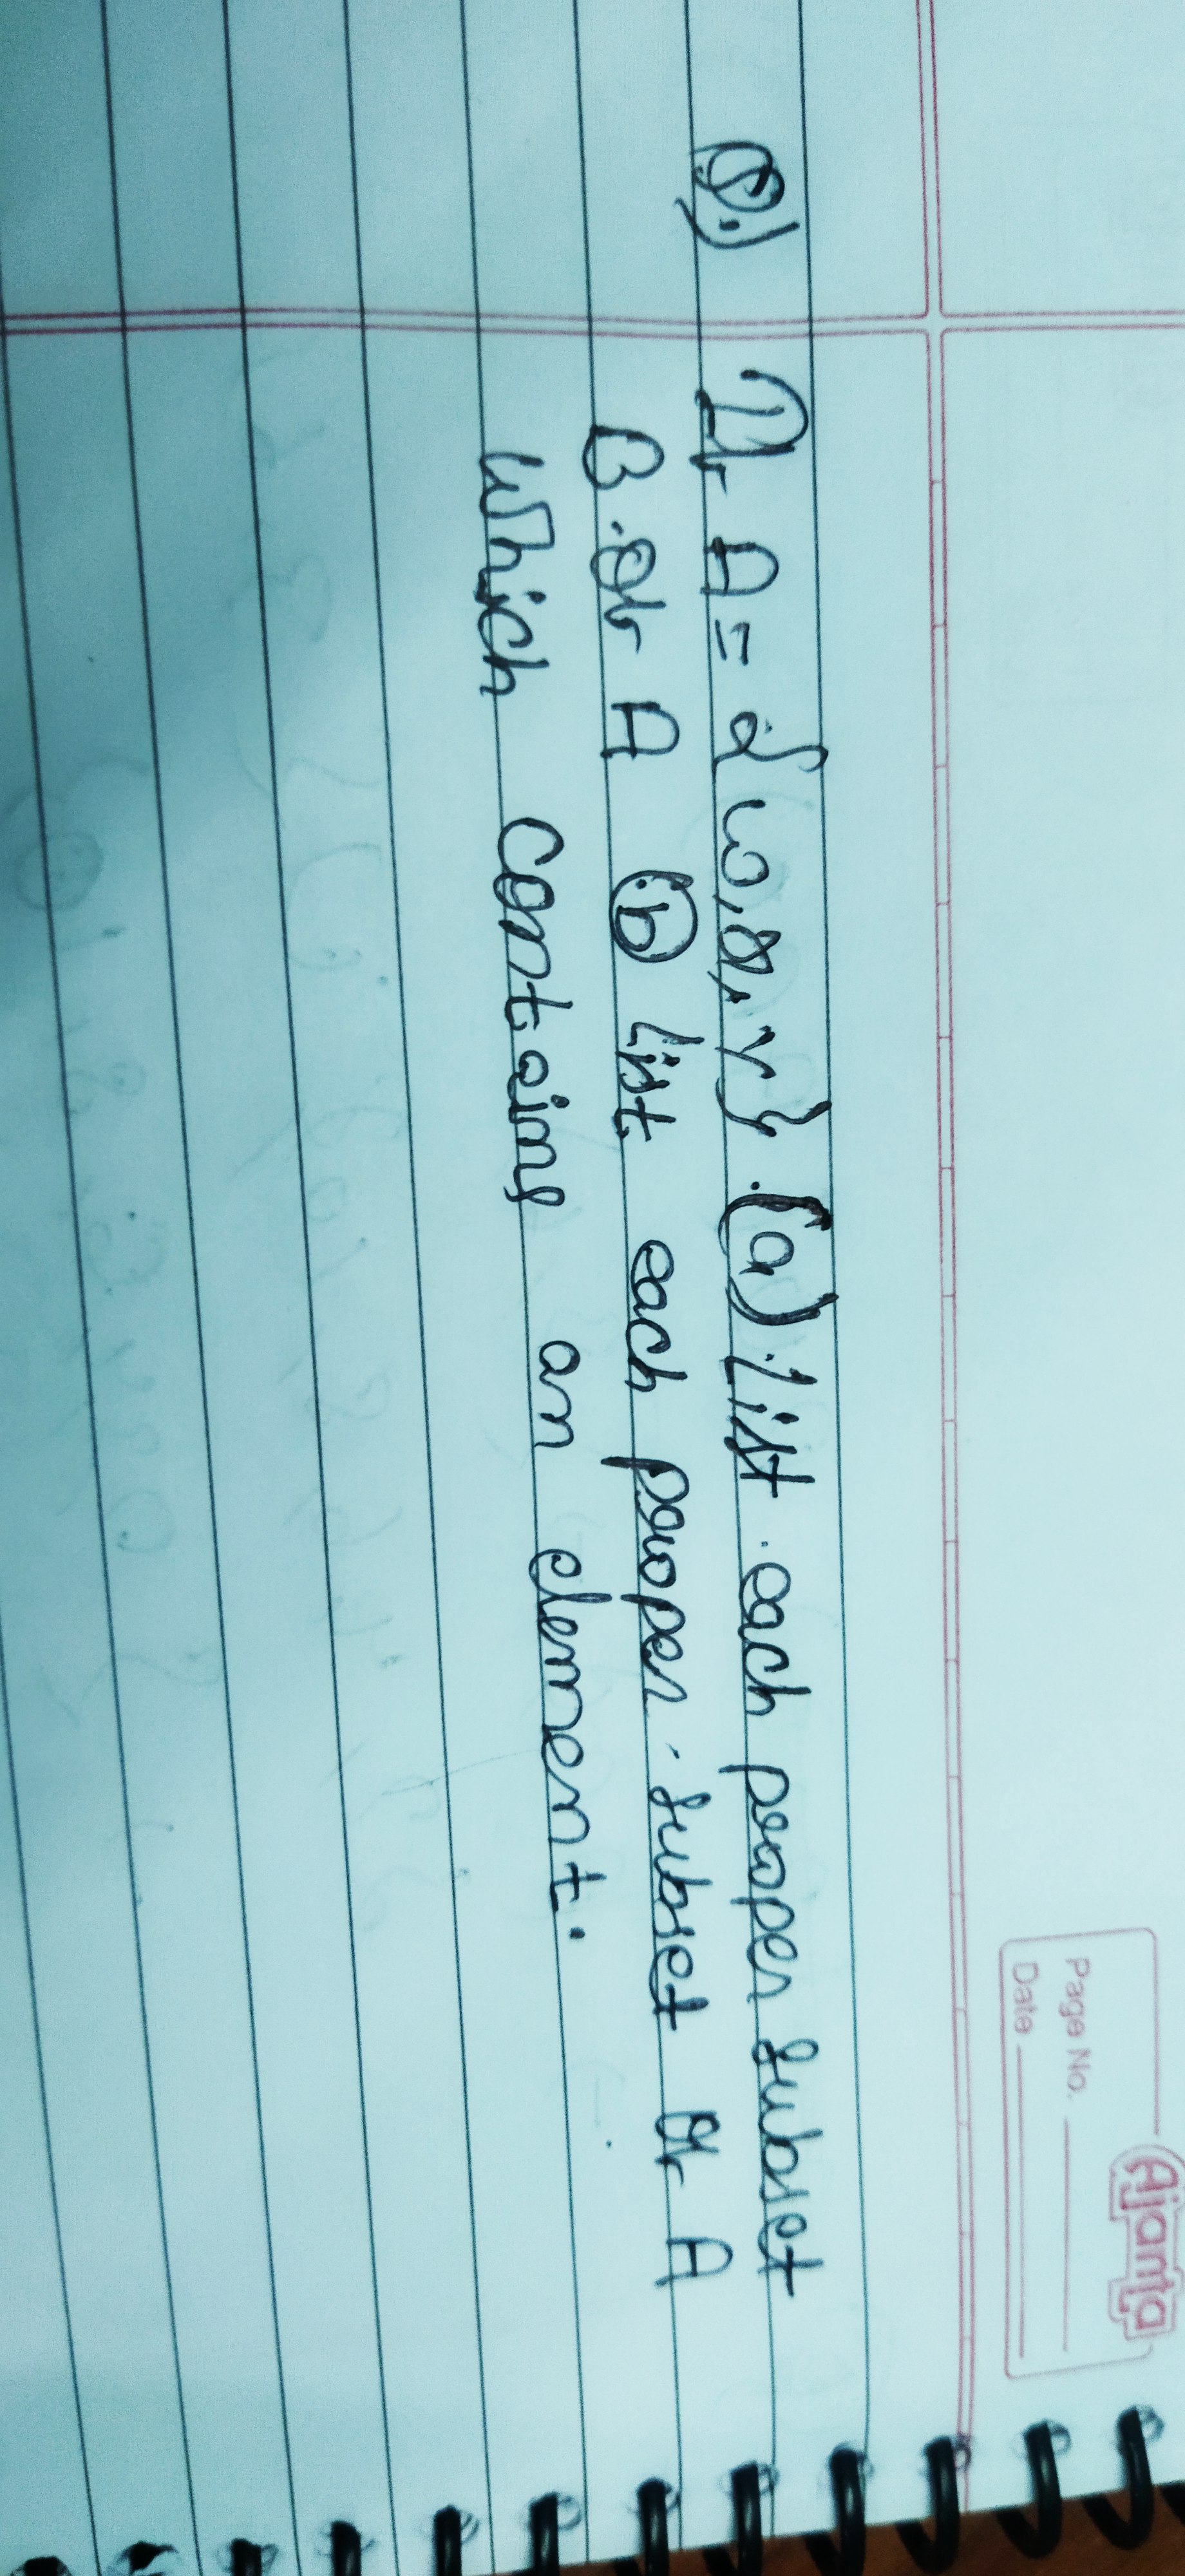 Page No.
Date
Ajanta
Q.) If A = {w, x, y} . (a) List each proper subset
B of A (b) List each proper subset of A
which contains an element.